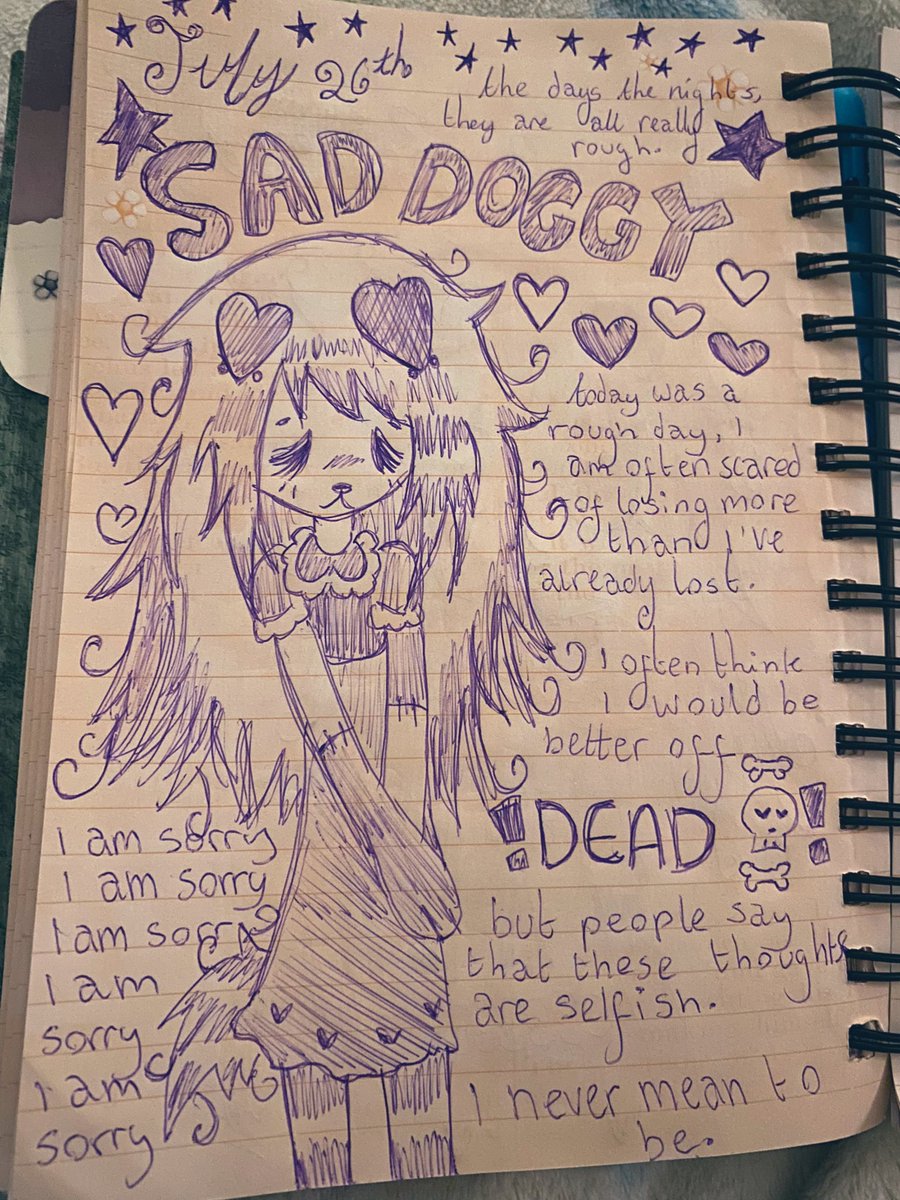 July 26th
the days the nights,
they are all really
rough.
SAD DOGGY
today was a
rough day, I
am often scared
of losing more
than I've
already lost.
I often think
I would be
better off
!DEAD !
but people say
that these thoughts
are selfish.
I never mean to
be.
I am sorry
I am sorry
I am sorry
I am
sorry
I am
sorry